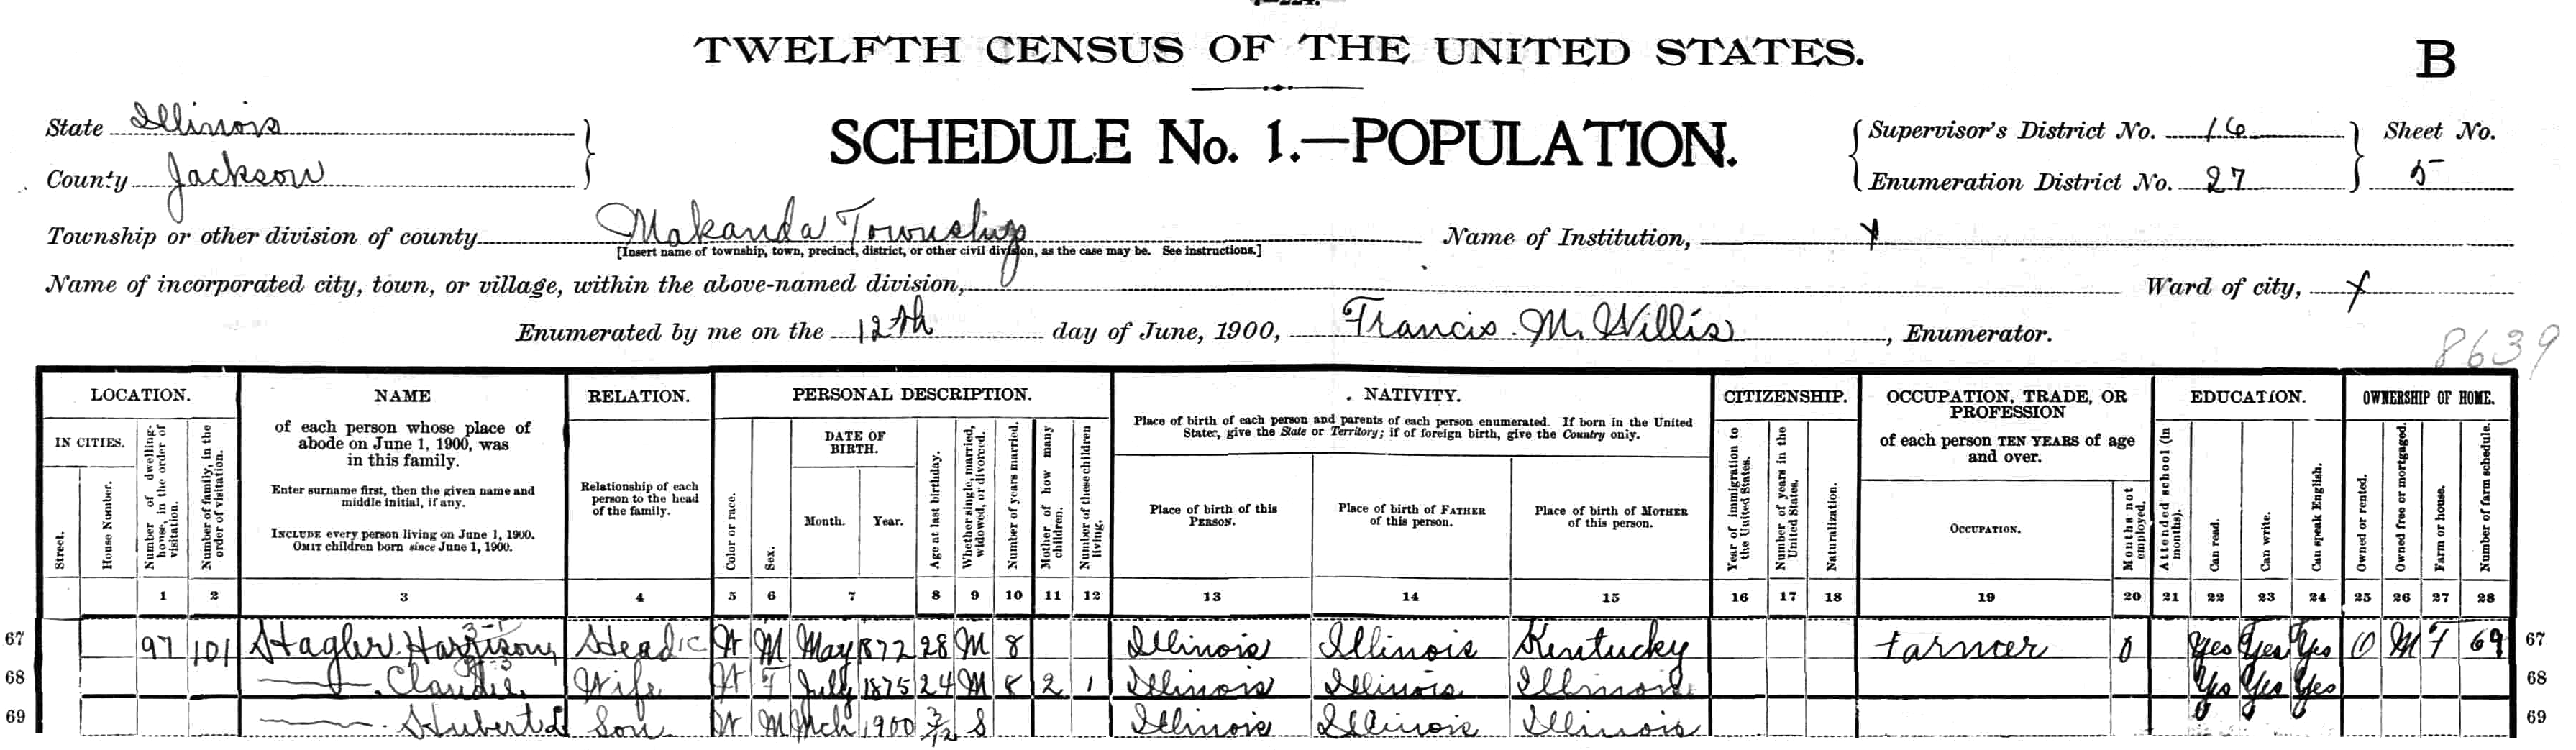 TWELFTH CENSUS OF THE UNITED STATES.
B
State Illinois
County Jackson
SCHEDULE No. 1.—POPULATION.
Supervisor's District No. 16
Enumeration District No. 27
Sheet No.
5
Township or other division of county Makanda Township
[Insert name of township, town, precinct, district, or other civil division, as the case may be. See instructions.]
Name of Institution, X
Name of incorporated city, town, or village, within the above-named division,
Ward of city, X
Enumerated by me on the 12th day of June, 1900, Francis M. Willis, Enumerator.
8639
LOCATION.
IN CITIES.
Street.
House Number.
Number of dwelling-house, in the order of visitation.
Number of family, in the order of visitation.
NAME
of each person whose place of
abode on June 1, 1900, was
in this family.
Enter surname first, then the given name and
middle initial, if any.
INCLUDE every person living on June 1, 1900.
OMIT children born since June 1, 1900.
RELATION.
Relationship of each
person to the head
of the family.
PERSONAL DESCRIPTION.
Color or race.
Sex.
DATE OF
BIRTH.
Month.
Year.
Age at last birthday.
Whether single, married, widowed, or divorced.
Number of years married.
Mother of how many children.
Number of these children living.
NATIVITY.
Place of birth of each person and parents of each person enumerated. If born in the United
States, give the State or Territory; if of foreign birth, give the Country only.
Place of birth of this
PERSON.
Place of birth of FATHER
of this person.
Place of birth of MOTHER
of this person.
CITIZENSHIP.
Year of immigration to the United States.
Number of years in the United States.
Naturalization.
OCCUPATION, TRADE, OR
PROFESSION
of each person TEN YEARS of age
and over.
OCCUPATION.
Months not employed.
EDUCATION.
Attended school (in months).
Can read.
Can write.
Can speak English.
OWNERSHIP OF HOME.
Owned or rented.
Owned free or mortgaged.
Farm or house.
Number of farm schedule.
1 2 3 4 5 6 7 8 9 10 11 12 13 14 15 16 17 18 19 20 21 22 23 24 25 26 27 28
67 97 101 Hagler Harrison, Head W M May 1872 28 M 8 Illinois Illinois Kentucky Farmer 0 Yes Yes Yes O M F 69 67
68 Claudie Wife W F July 1875 24 M 8 2 1 Illinois Illinois Illinois Yes Yes Yes 68
69 Hubert L Son W M Mch 1900 3/12 S Illinois Illinois Illinois 69